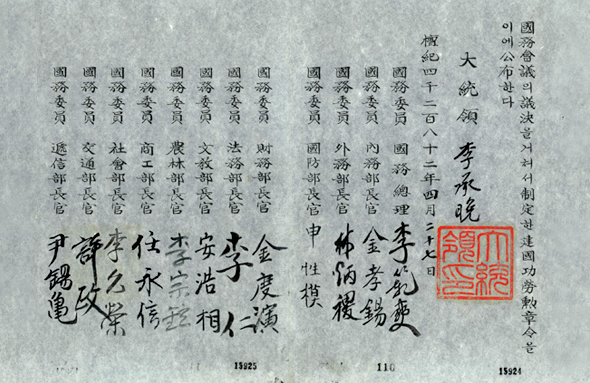 國務會議의議決을거처서制定한建國功勞勳章令을
이에公布한다
大統領 李承晚
大統領印
檀紀四千二百八十二年四月二十七日
國務委員 國務總理 李範奭
國務委員 內務部長官 金孝錫
國務委員 外務部長官 林炳稷
國務委員 國防部長官 申性模
國務委員 財務部長官 金度演
國務委員 法務部長官 李仁
國務委員 文敎部長官 安浩相
國務委員 農林部長官 李宗鉉
國務委員 商工部長官 任永信
國務委員 社會部長官 李允榮
國務委員 交通部長官 許政
國務委員 遞信部長官 尹錫亀
15924
110
15925